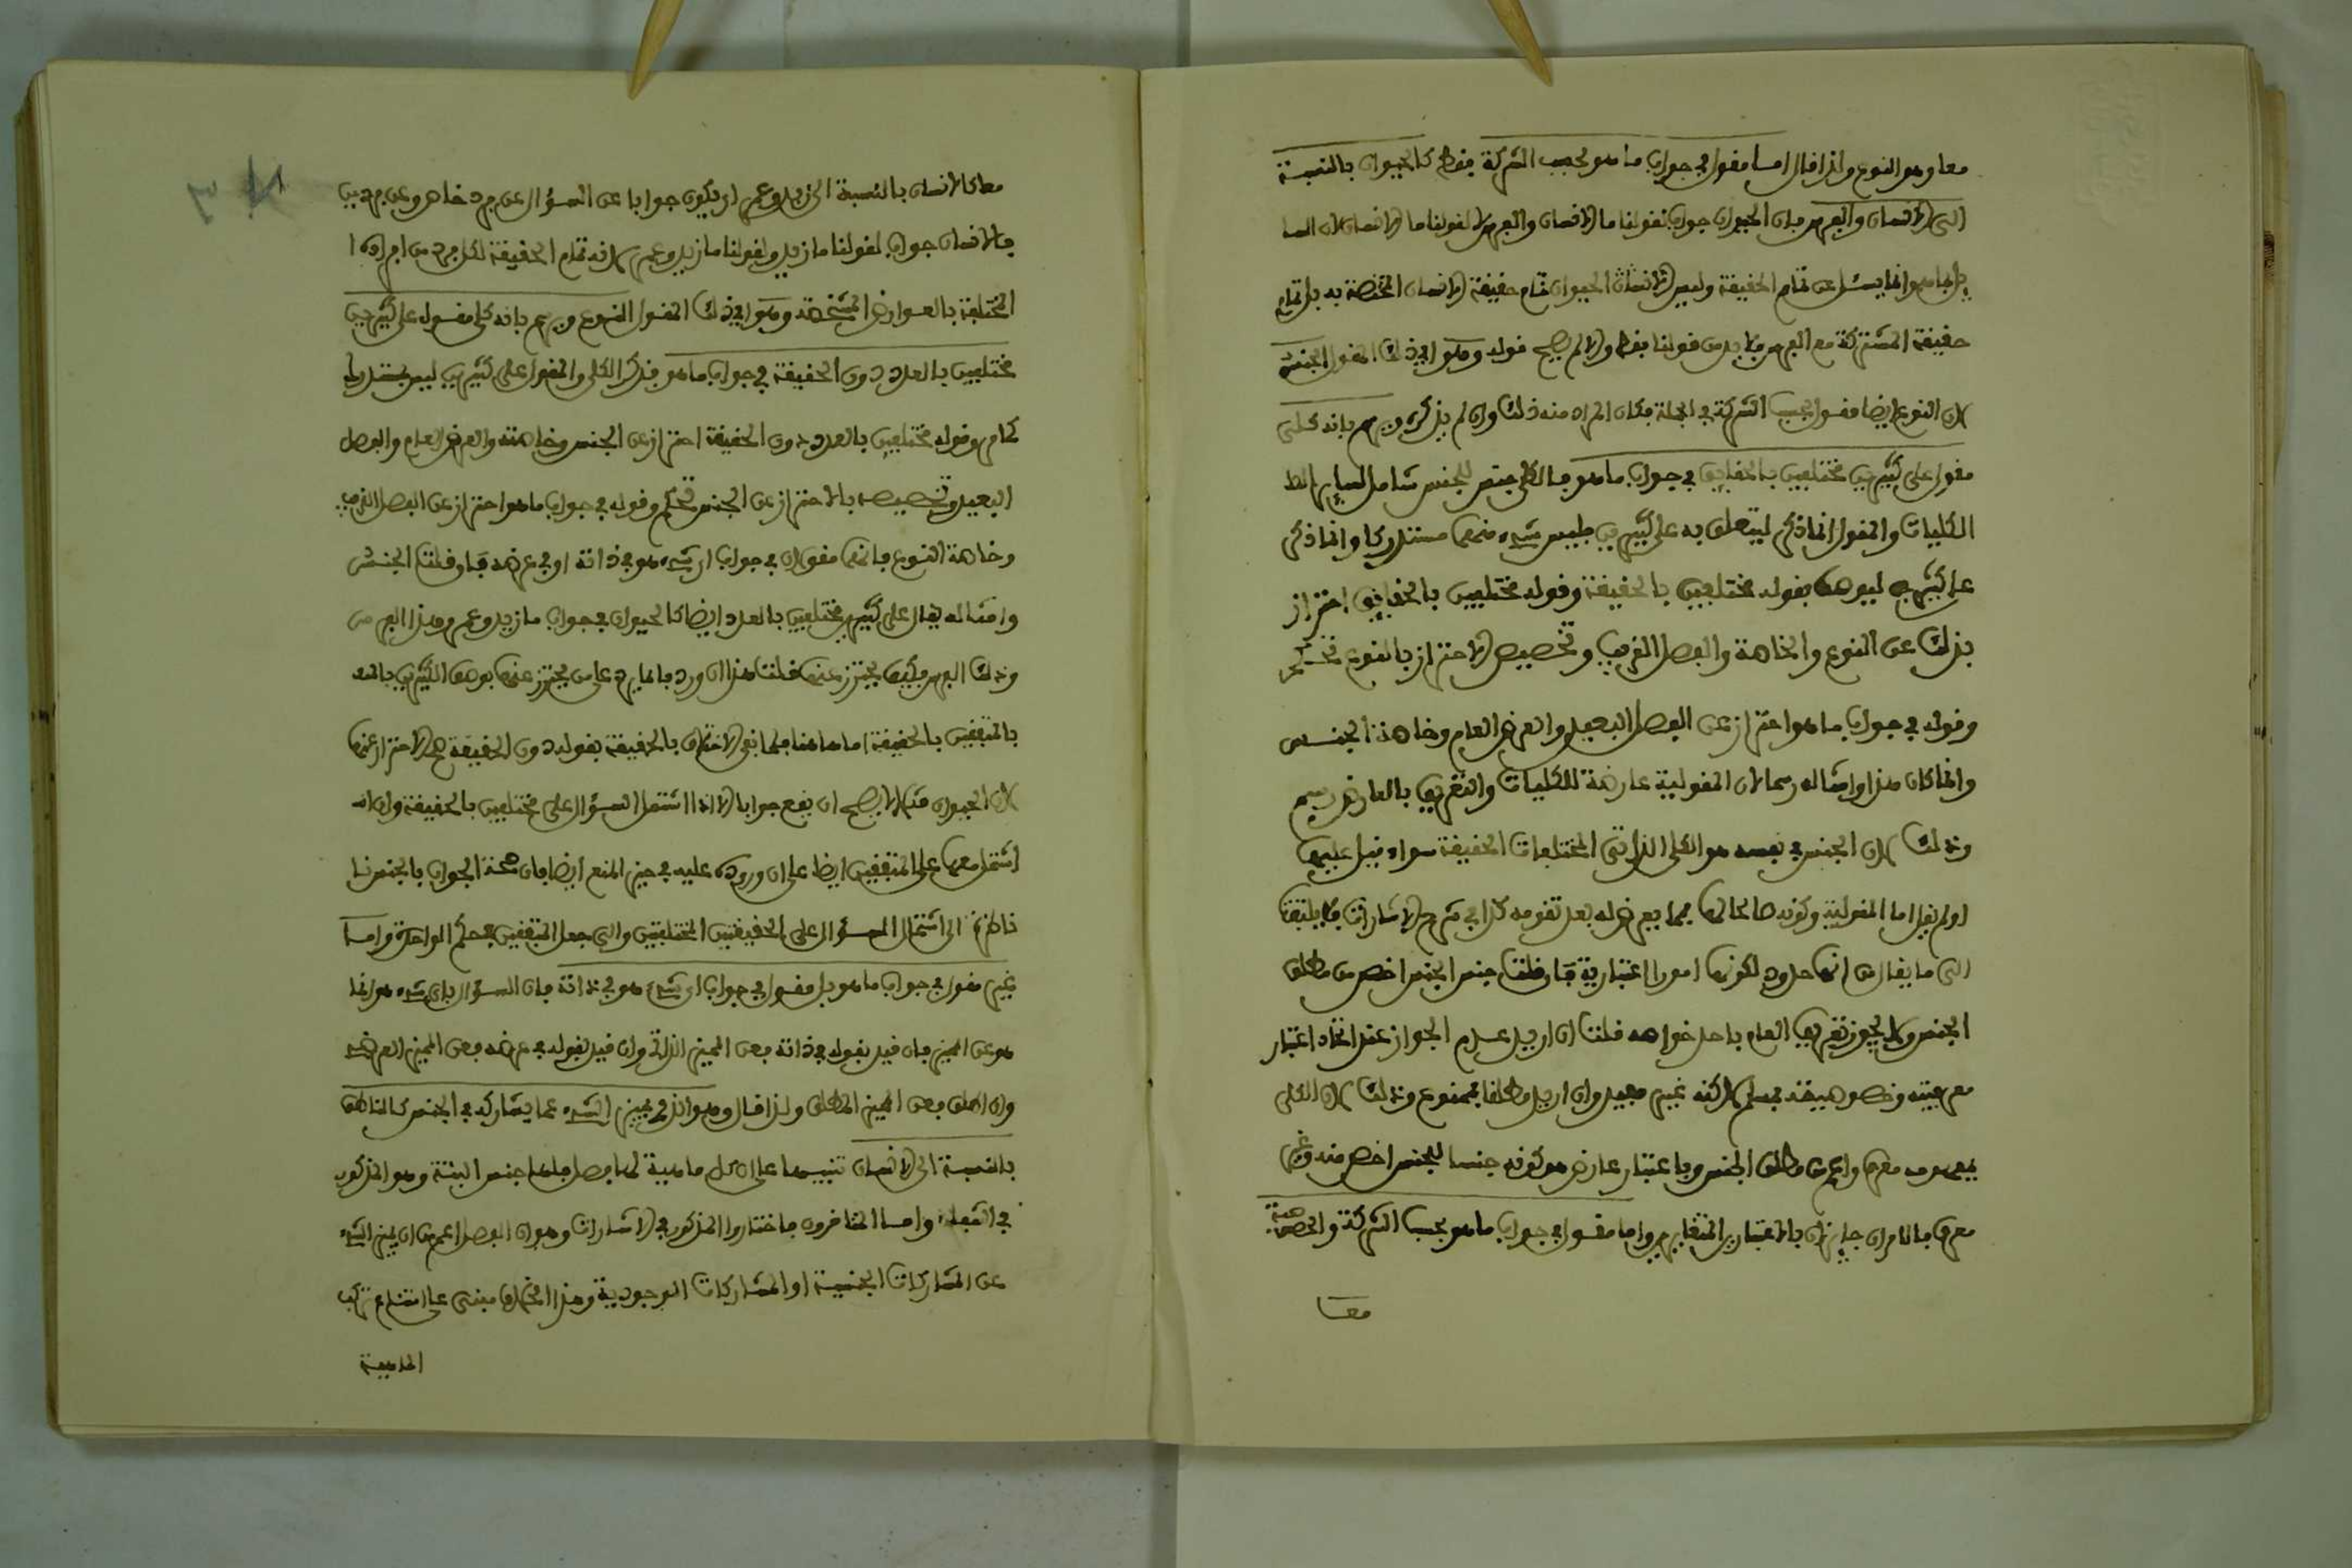 معا وهو النوع ولذا قال اما مقول في جواب ما هو بحسب الشركة فقط كالحيوان بالنسبة
الى الانسان والفرس فان الحيوان جواب لقولنا ما الانسان والفرس لا لقولنا ما الانسان لان السا
يل بما هو انما يسئل عن تمام الحقيقة وليس الحيوان تمام حقيقة الانسان المختصة به بل تمام
حقيقة المشتركة مع الفرس فلا بد من قولنا فقط والا لم يصح قوله وهو اي ذلك المقول الجنس
لان النوع ايضا مقول بحسب الشركة في الجملة فكان المراد منه ذلك وان لم يذكره ويرسم بانه كلي
مقول على كثيرين مختلفين بالحقايق في جواب ما هو فالكلي جنس للجنس شامل لساير
الكليات والمقول انما ذكر ليتعلق به على كثيرين فليس شيء منهما مستدركا وانما ذكر
على كثيرين ليوصف بقوله مختلفين بالحقيقة وقوله مختلفين بالحقايق احتراز
بذلك عن النوع والخاصة والفصل القريب وتخصيص الاحتراز بالنوع تحكم
وقوله في جواب ما هو احتراز عن الفصل البعيد والعرض العام وخاصة الجنس
وانما كان هذا وامثاله رسما لان المقولية عارضة للكليات والتعريف بالعارض رسم
وذلك لان الجنس في نفسه هو الكلي الذاتي المختلفات الحقيقة سواء قيل عليها
او لم يقل اما المقولية وكونه صالحا لها فمما يعرض له بعد تقومه كذا في شرح الاشارات فلا يلتفت
الى ما يقال من انها حدود لكونها امورا اعتبارية فان قلت جنس الجنس اخص من مطلق
الجنس ولا يجوز تعريف العام باحد خواصه قلت ان اريد عدم الجواز عند اتحاد اعتبار
معرفيته وخصوصيته فمسلم لاكنه غير مفيد وان اريد مطلقا فممنوع وذلك لان الكلي
بمفهومه معرف واعم من مطلق الجنس وباعتبار عارض هو كونه جنسا للجنس اخص منه وغير
معرف فالامران جايزان بالاعتبارين المتغايرين واما مقول في جواب ما هو بحسب الشركة والخصوصية
معا
معا كالانسان بالنسبة الى زيد وعمر او يكون جوابا عن السؤال عن فرد خاص وعن فردين
فالانسان جواب لقولنا ما زيد ولقولنا ما زيد وعمر لانه تمام الحقيقة لكل فرد من افراده ا
المختلفة بالعوارض المشخصة وهو اي ذلك المقول النوع ويرسم بانه كلي مقول على كثيرين
مختلفين بالعدد دون الحقيقة في جواب ما هو فذكر الكلي والمقول على كثيرين ليس بمستدرك
كما مر وقوله مختلفين بالعدد دون الحقيقة احتراز عن الجنس وخاصته والعرض العام والفصل
البعيد وتخصيصه بالاحتراز عن الجنس تحكم وقوله في جواب ما هو احتراز عن الفصل القريب
وخاصة النوع فانهما مقولان في جواب اي شيء هو في ذاته او في عرضه فان قلت الجنس
وامثاله يقال على كثيرين مختلفين بالعدد ايضا كالحيوان في جواب ما زيد وعمر وهذا الفرس
وذلك الفرس فكيف يحترز عنها قلت هذا ان ورد فانما يرد على من يحترز عنها بوصف الكثيرين
بالمتفقين بالحقيقة اما هاهنا فلما نفي الاختلاف بالحقيقة بقوله دون الحقيقة صح الاحتراز عنها
لان الحيوان مثلا لا يصح ان يقع جوابا الا اذا اشتمل السؤال على مختلفين بالحقيقة وان
اشتمل معها على المتفقين ايضا على ان وروده عليه في حيز المنع ايضا فان صحة الجواب بالجنس
ناظرة الى اشتمال السؤال على الحقيقتين المختلفتين والى جعل المتفقين في حكم الواحدة واما
غير مقول في جواب ما هو بل مقول في جواب اي شيء هو في ذاته فان السؤال باي شيء هو انما
هو عن المميز فان قيد بقوله في ذاته فعن المميز الذاتي وان قيد بقوله في عرضه فعن المميز العرضي
وان اطلق فعن المميز المطلق ولذا قال وهو الذي يميز الشيء عما يشاركه في الجنس كالناطق
بالنسبة الى الانسان تنبيها على ان كل ماهية لها فصل فلها جنس البتة وهو المذكور
في الشفاء واما المتاخرون فاختاروا المذكور في الاشارات وهو ان الفصل اعم من ان يميز الشيء
عن المشاركات الجنسية او المشاركات الوجودية وهذا الخلاف مبني على امتناع تركب
الماهية